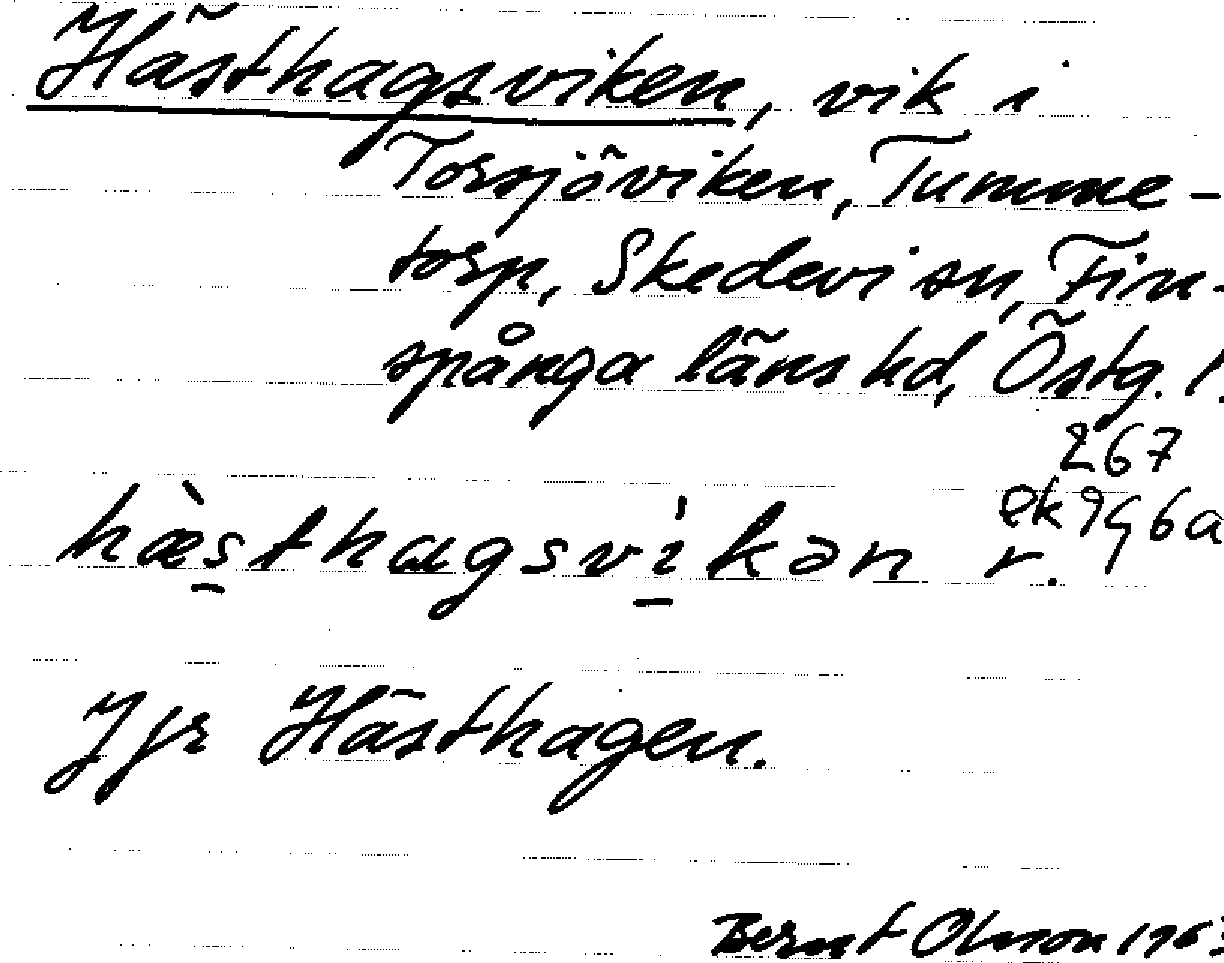 Hästhagsviken, vik i
Torsjöviken, Tumme-
torp, Skedevi sn, Fin-
spånga läns hd, Östg. l.
267
ek 9G6a
hæ̀sthagsvìkən r.
Jfr Hästhagen.
Bernt Olsson